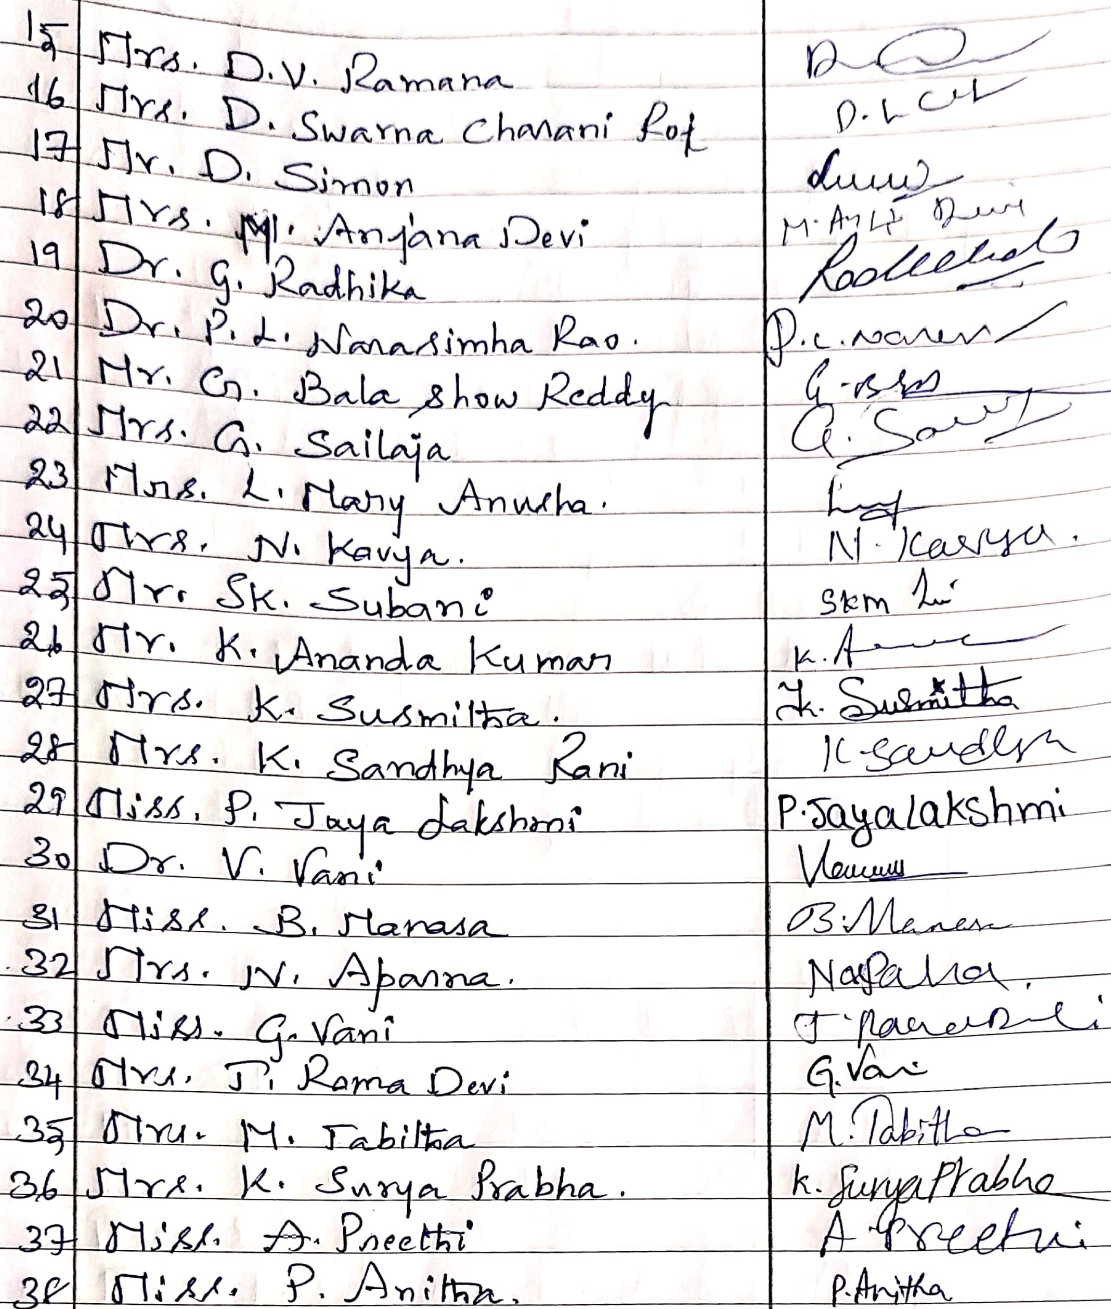 15 Mrs. D.V. Ramana
16 Mrs. D. Swarna Charani D.L
17 Mr. D. Simon
18 Mrs. M. Anjana Devi M.
19 Dr. G. Radhika
20 Dr. P. L. Narasimha Rao. P.L.
21 Mr. G. Bala show Reddy
22 Mrs. G. Sailaja G.
23 Mrs. L. Mary Anusha.
24 Mrs. N. Kavya. N. Kavya.
25 Mr. SK. Subani SKM
26 Mr. K. Ananda Kumar K.
27 Mrs. K. Susmitha. K. Susmitha
28 Mrs. K. Sandhya Rani K
29 Miss. P. Jaya Lakshmi P.JayaLakshmi
30 Dr. V. Vani
31 Miss. B. Manasa B.Manasa
32 Mrs. N. Aparna.
33 Miss. G. Vani
34 Mrs. J. Rama Devi G.Vani
35 Mrs. M. Tabitha M.Tabitha
36 Mrs. K. Surya Prabha. K. SuryaPrabha
37 Miss. A. Preethi A Preethi
38 Miss. P. Anitha. P.Anitha